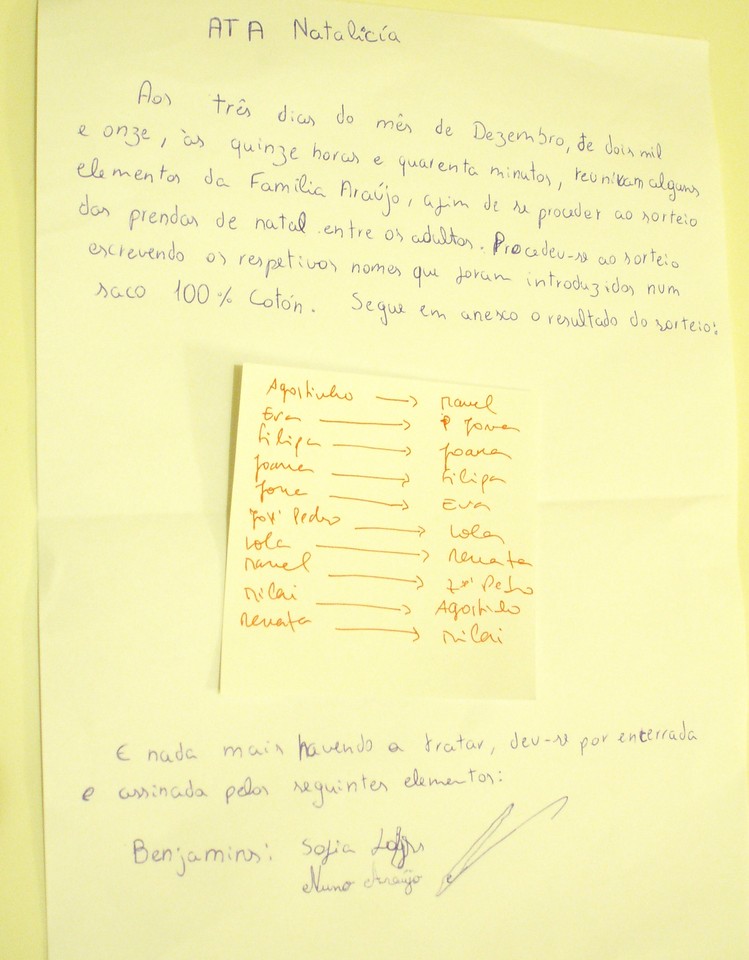 ATA Natalícia
Aos três dias do mês de Dezembro, de dois mil
e onze, às quinze horas e quarenta minutos, reuniram alguns
elementos da Família Araújo, afim de se proceder ao sorteio
das prendas de natal entre os adultos. Procedeu-se ao sorteio
escrevendo os respetivos nomes que foram introduzidos num
saco 100% Cotón. Segue em anexco o resultado do sorteio:
Agostinho → Manel
Eva →
Filipa → Joana
Joana → Filipa
→ Eva
José Pedro → Lola
Lola → Renata
Manel → Zé Pedro
Milai → Agostinho
Renata → Milai
E nada mais havendo a tratar, deu-se por enterrada
e assinada pelos seguintes elementos:
Benjamins: Sofia
Nuno Araújo